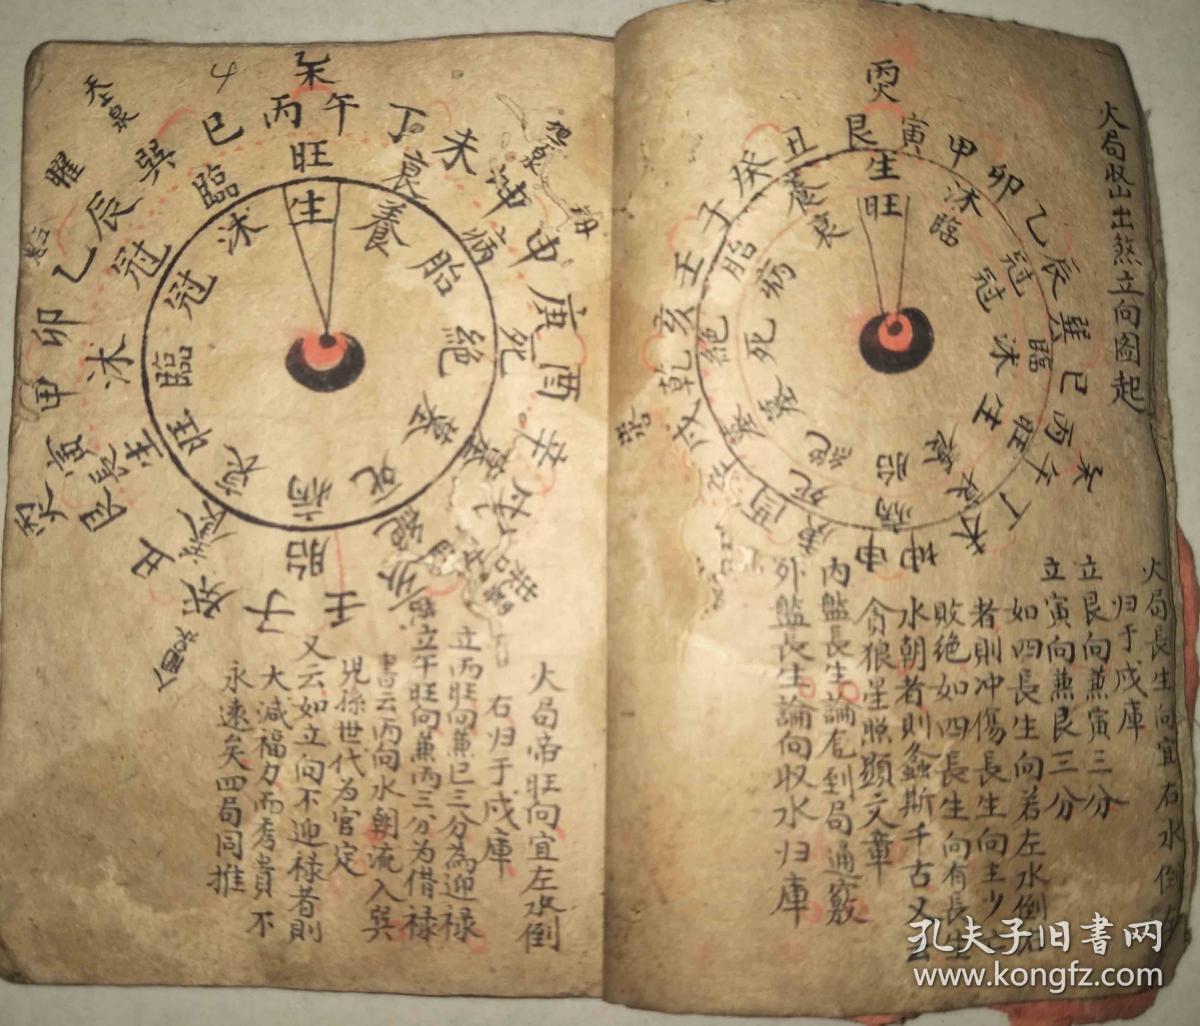 火局竖山出煞立向图起
丙火
艮
寅
甲
卯
乙
辰
巽
巳
丙
午
丁
未
坤
申
庚
酉
戌
乾
亥
壬
子
癸
丑
生
沐
冠
臨
旺
衰
病
死
墓
絕
胎
養
旺
臨
冠
沐
生
養
胎
墓
死
病
衰
火局長生向宜右水倒左
归于戌庫
立艮向兼寅三分
立寅向兼艮三分
如四長生向若左水倒右
者則冲傷長生向主少亡
敗絕如四長生向有長生
水朝者則螽斯千古又云
貪狼星照顯文章
内盤長生論龙到局通竅
外盤長生論向收水归庫
丙
午
丁
未
坤
申
庚
酉
辛
戌
壬
子
癸
丑
艮
甲
卯
乙
辰
巽
巳
旺
衰
病
死
墓
胎
沐
冠
臨
生
養
胎
絕
墓
死
病
衰
旺
臨
冠
沐
曜
火局帝旺向宜左水倒
右归于戌庫
立丙旺向兼巳三分為迎禄
立午旺向兼丙三分为借禄
書云丙向水朝流入巽
兒孫世代为官定
又云如立向不迎禄者則
大減福力而秀貴不
永遠矣四局同推
孔夫子旧書网
www.kongfz.com